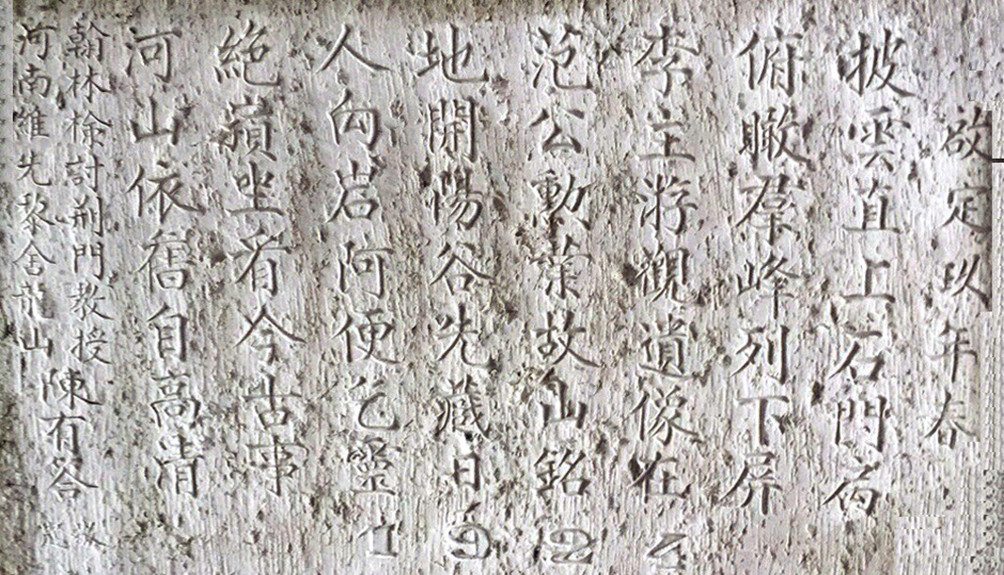 啟定玖年春
披雲直上石門扃
俯瞰羣峰列下屏
李主游觀遺像在
范公勳業故山銘
地開陽谷先藏日
人向岩阿便乞靈
絶嶺坐看今古事
河山依舊自高清
翰林檢討荆門教授
河南維先黎舍龍山
陳有答
1924